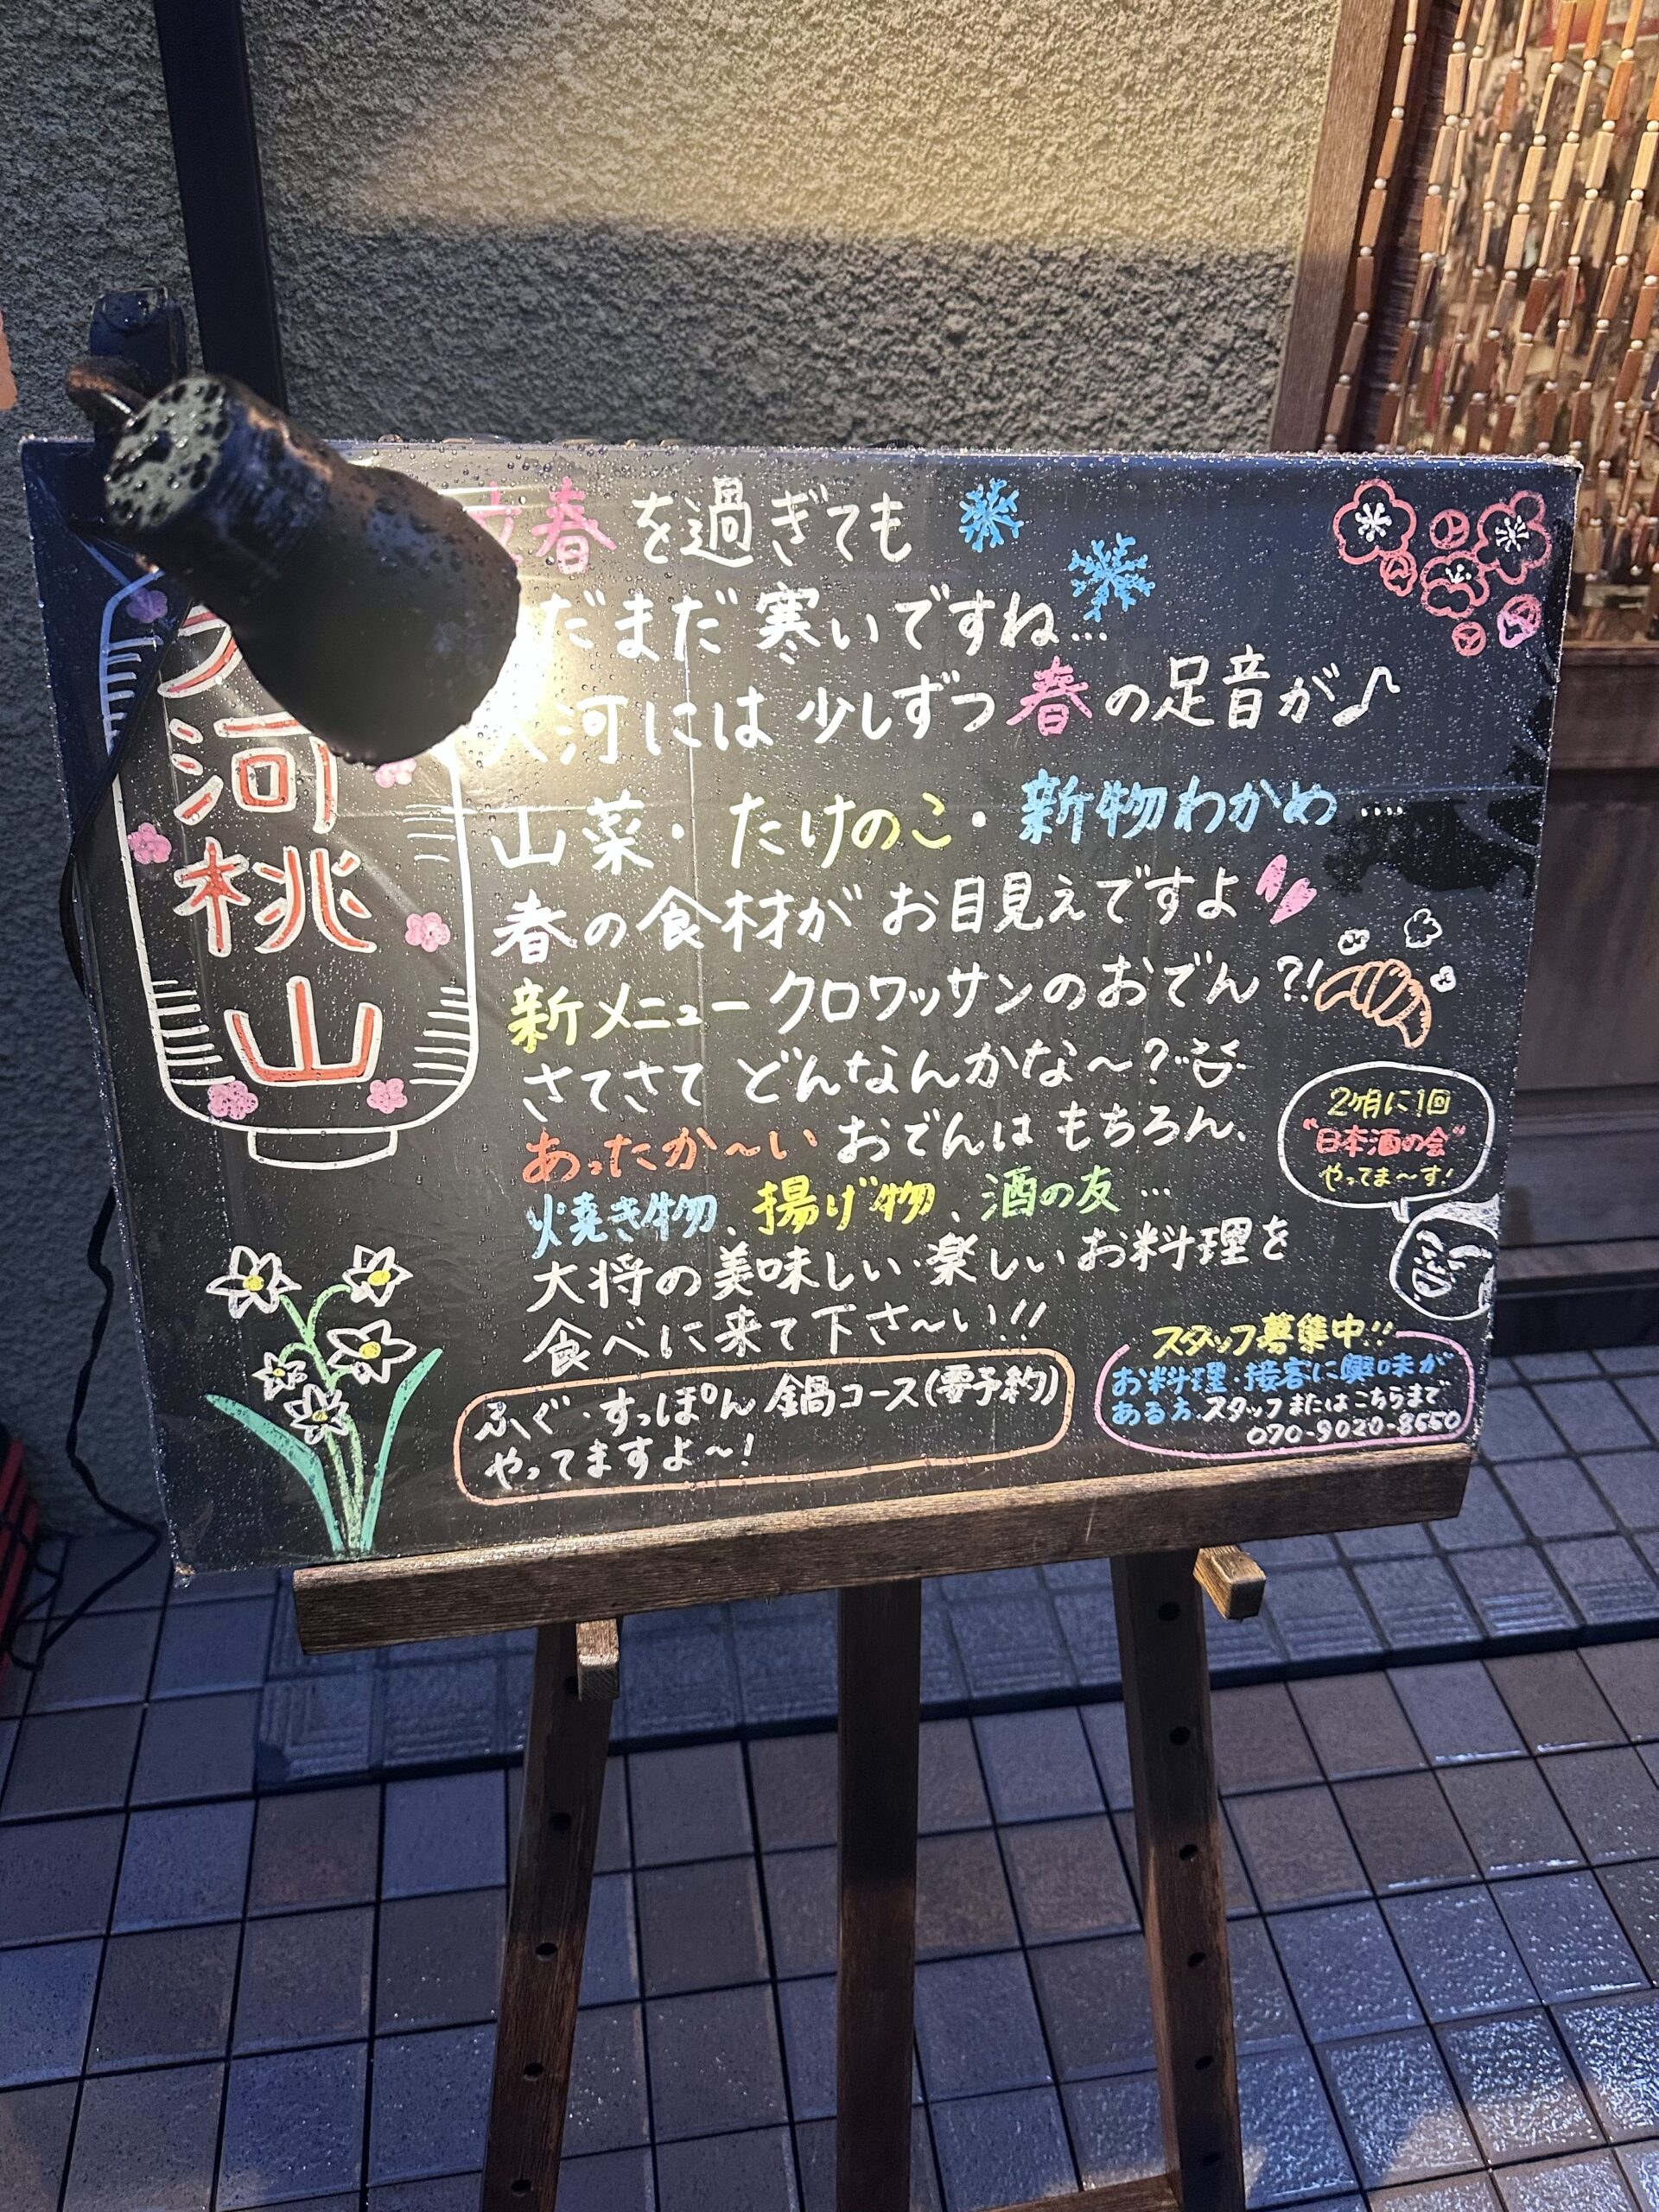 河
桃
山
春を過ぎても
だまだ寒いですね…
河には少しずつ春の足音が♪
山菜・たけのこ・新物わかめ‥‥
春の食材がお目見えですよ
新メニュークロワッサンのおでん?!
さてさてどんなんかな〜?
あったか〜いおでんはもちろん、
焼き物、揚げ物、酒の友…
大将の美味しい・楽しいお料理を
食べに来て下さ〜い!!
ふぐ・すっぽん鍋コース(要予約)
やってますよ〜!
2ヶ月に1回
"日本酒の会"
やってま〜す!
スタッフ募集中!!
お料理・接客に興味が
ある方、スタッフまたはこちらまで
070-9020-8550